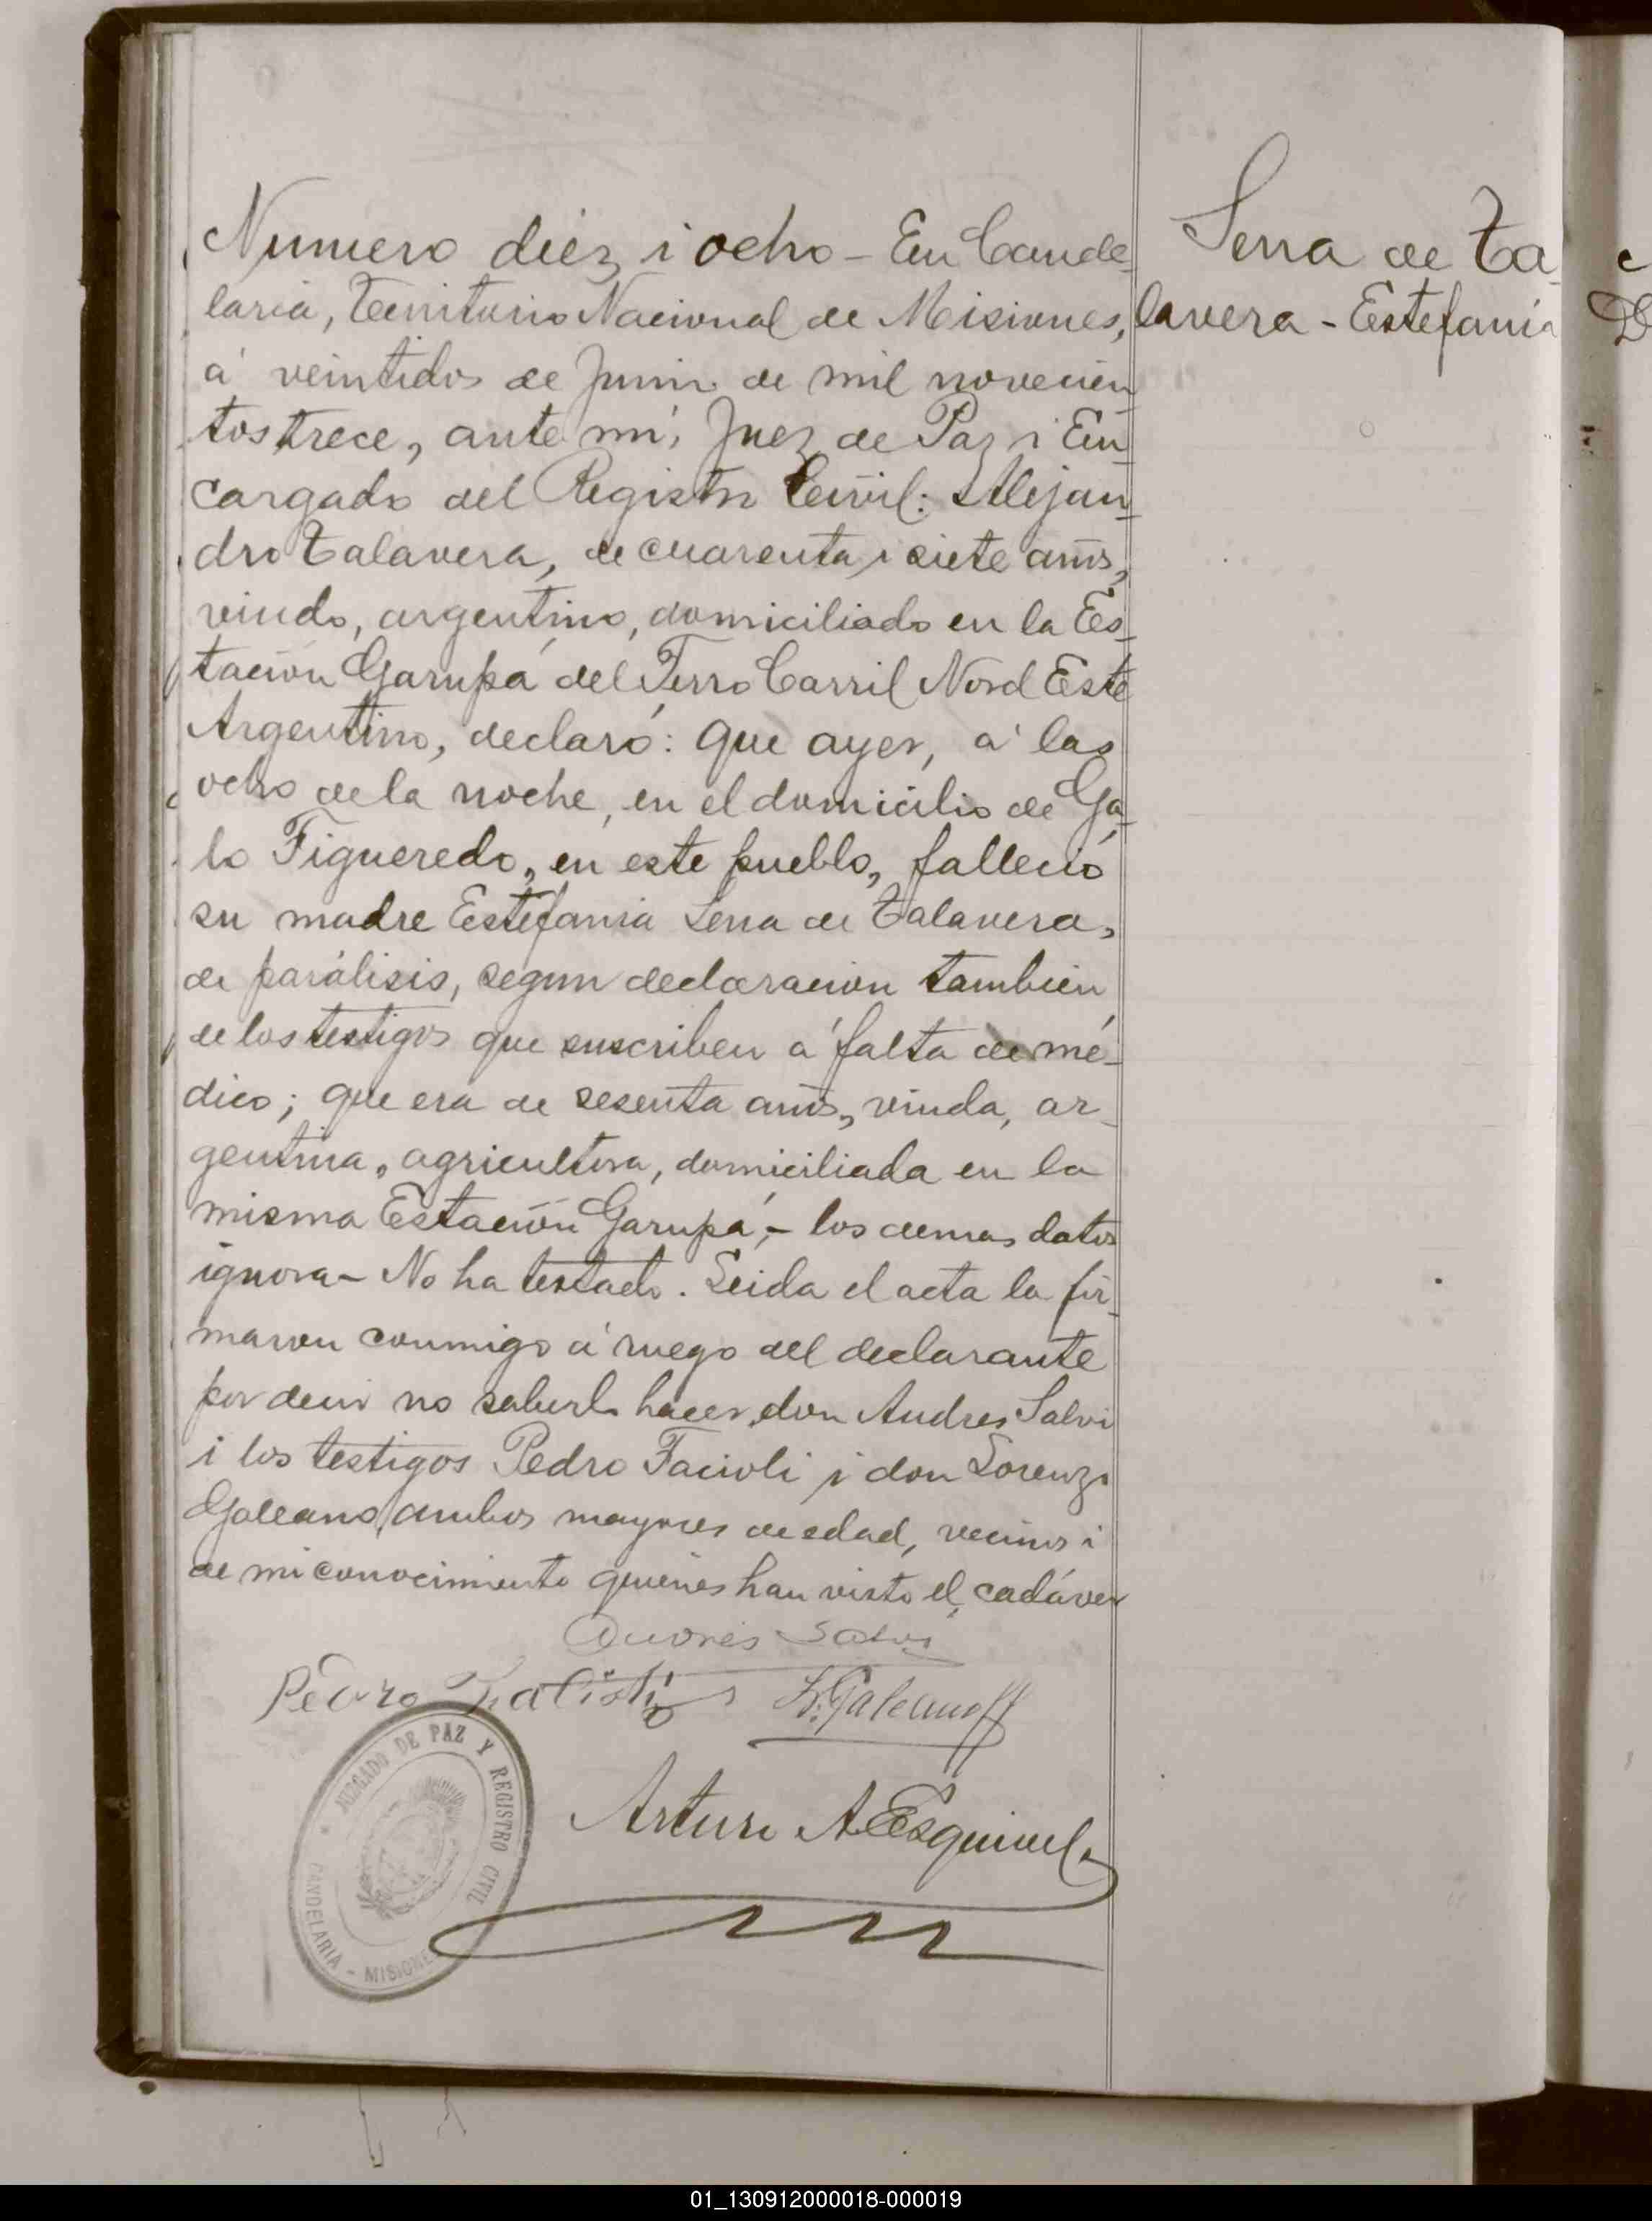 Numero diez i ocho - En Cande-
laria, Territorio Nacional de Misiones,
á veintidos de Junio de mil novecien-
tos trece, ante mí, Juez de Paz i En-
cargado del Registro Civil: Alejan-
dro Talavera, de cuarenta i siete años,
viudo, argentino, domiciliado en la Es-
tación Garupá del Ferro Carril Nord Este
Argentino, declaró: que ayer, á las
ocho de la noche, en el domicilio de Ga-
lo Figueredo, en este pueblo, falleció
su madre Estefania Serra de Talavera,
de parálisis, segun declaracion tambien
de los testigos que suscriben á falta de mé-
dico; que era de sesenta años, viuda, ar-
gentina, agricultora, domiciliada en la
misma Estación Garupá; - los demas datos
ignora - No ha testado. Leida el acta la fir-
maron conmigo á ruego del declarante
por decir no saberlo hacer don Andres Salvi
i los testigos Pedro Facioli i don Lorenzo
Galeano, ambos mayores de edad, vecinos i
de mi conocimiento quienes han visto el cadáver
Serra de Ta-
lavera - Estefania
Andres Salvi
Pedro
L. Galeano
Arturo A Esquivel
JUZGADO DE PAZ Y REGISTRO CIVIL
CANDELARIA - MISIONES
01_130912000018-000019